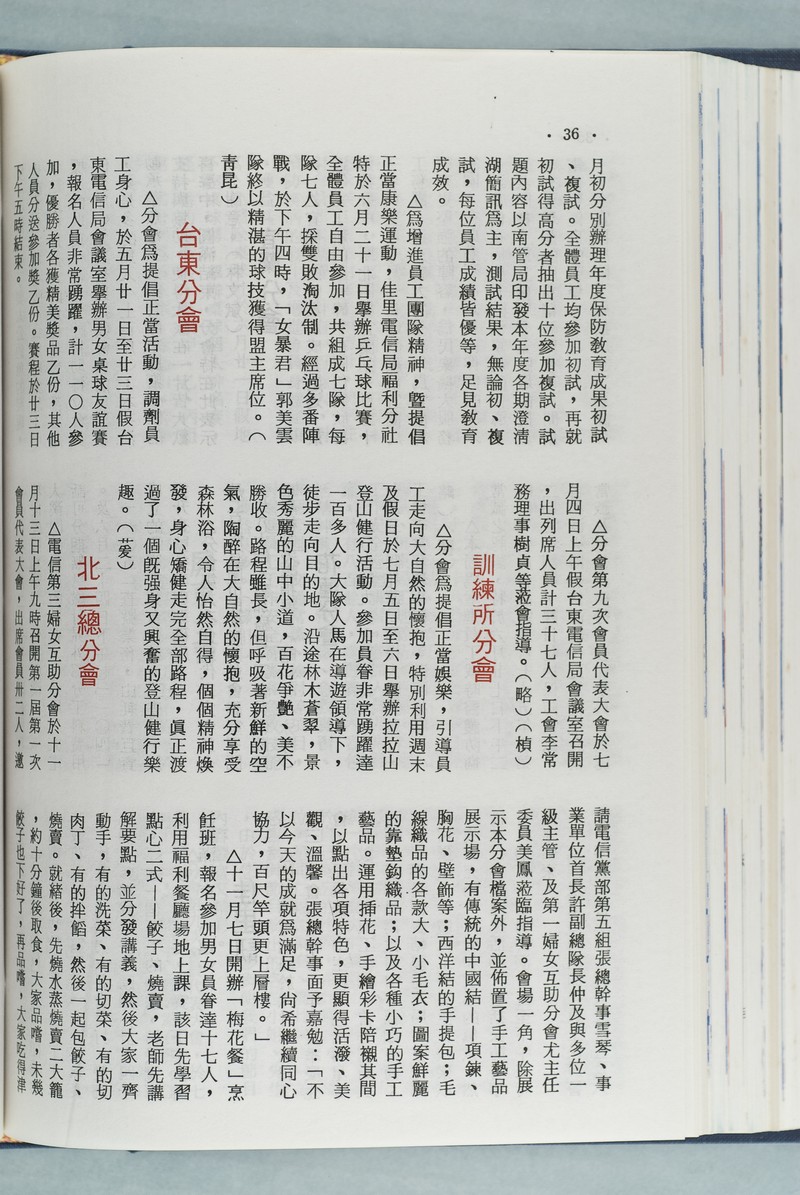 · 36 ·
月初分別辦理年度保防教育成果初試
、複試。全體員工均參加初試，再就
初試得高分者抽出十位參加複試。試
題內容以南管局印發本年度各期澄清
湖簡訊爲主，測試結果，無論初、複
試，每位員工成績皆優等，足見教育
成效。
△爲增進員工團隊精神，暨提倡
正當康樂運動，佳里電信局福利分社
特於六月二十一日舉辦乒乓球比賽，
全體員工自由參加，共組成七隊，每
隊七人，採雙敗淘汰制。經過多番陣
戰，於下午四時，「女暴君」郭美雲
隊終以精湛的球技獲得盟主席位。（
青昆）
台東分會
△分會爲提倡正當活動，調劑員
工身心，於五月廿一日至廿三日假台
東電信局會議室舉辦男女桌球友誼賽
，報名人員非常踴躍，計一一〇人參
加，優勝者各獲精美獎品乙份，其他
人員分送參加獎乙份。賽程於廿三日
下午五時結束。
△分會第九次會員代表大會於七
月四日上午假台東電信局會議室召開
，出列席人員計三十七人，工會李常
務理事樹貞等蒞會指導。（略）（楨）
訓練所分會
△分會爲提倡正當娛樂，引導員
工走向大自然的懷抱，特別利用週末
及假日於七月五日至六日舉辦拉拉山
登山健行活動。參加員眷非常踴躍達
一百多人。大隊人馬在導遊領導下，
徒步走向目的地。沿途林木蒼翠，景
色秀麗的山中小道，百花爭艷、美不
勝收。路程雖長，但呼吸著新鮮的空
氣，陶醉在大自然的懷抱，充分享受
森林浴，令人怡然自得，個個精神煥
發，身心矯健走完全部路程，眞正渡
過了一個旣强身又興奮的登山健行樂
趣。（薆）
北三總分會
△電信第三婦女互助分會於十一
月十三日上午九時召開第一屆第一次
會員代表大會，出席會員卅二人，邀
請電信黨部第五組張總幹事雪琴、事
業單位首長許副總隊長仲及與多位一
級主管、及第一婦女互助分會尤主任
委員美鳳蒞臨指導。會場一角，除展
示本分會檔案外，並佈置了手工藝品
展示場，有傳統的中國結——項鍊、
胸花、壁飾等；西洋結的手提包；毛
線織品的各款大、小毛衣；圖案鮮麗
的靠墊鈎織品；以及各種小巧的手工
藝品。運用插花、手繪彩卡陪襯其間
，以點出各項特色，更顯得活潑、美
觀、溫馨。張總幹事面予嘉勉：「不
以今天的成就爲滿足，尙希繼續同心
協力，百尺竿頭更上層樓。」
△十一月七日開辦「梅花餐」烹
飪班，報名參加男女員眷達十七人，
利用福利餐廳場地上課，該日先學習
點心二式——餃子、燒賣，老師先講
解要點，並分發講義，然後大家一齊
動手，有的洗菜、有的切菜、有的切
肉丁、有的拌餡，然後一起包餃子、
燒賣。就緒後，先燒水蒸燒賣二大籠
，約十分鐘後取食，大家品嚐，未幾
餃子也下好了，再品嚐，大家吃得津